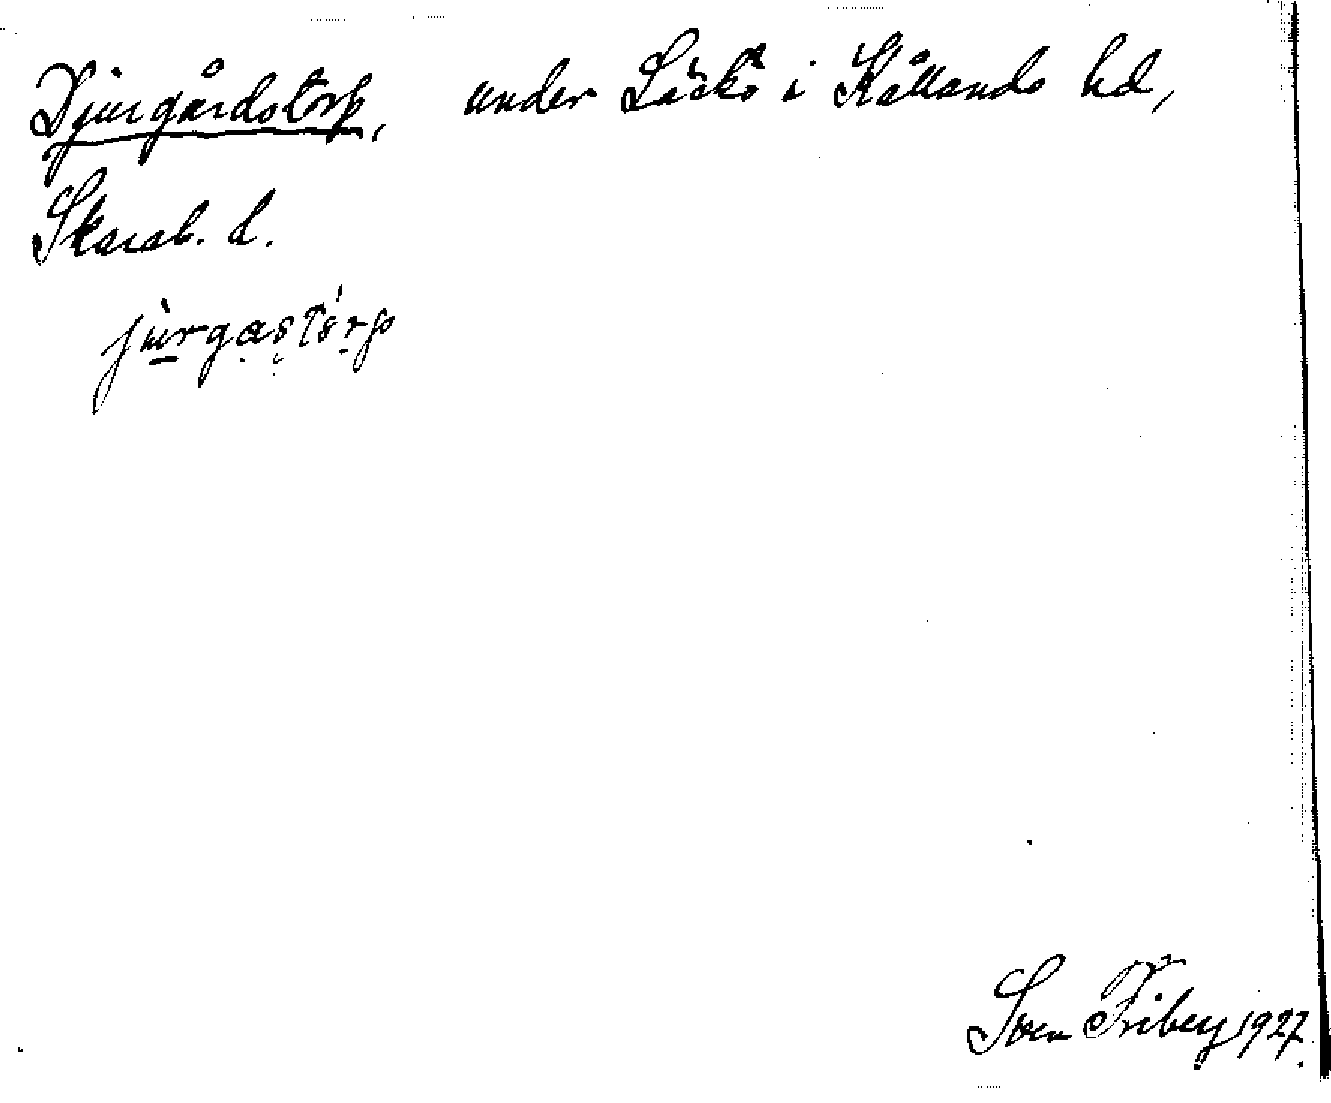 Djurgårdstorp, under Läckö i Kållands hd,
Skarab. l.
jùrgastórp
Sven Friberg 1927.